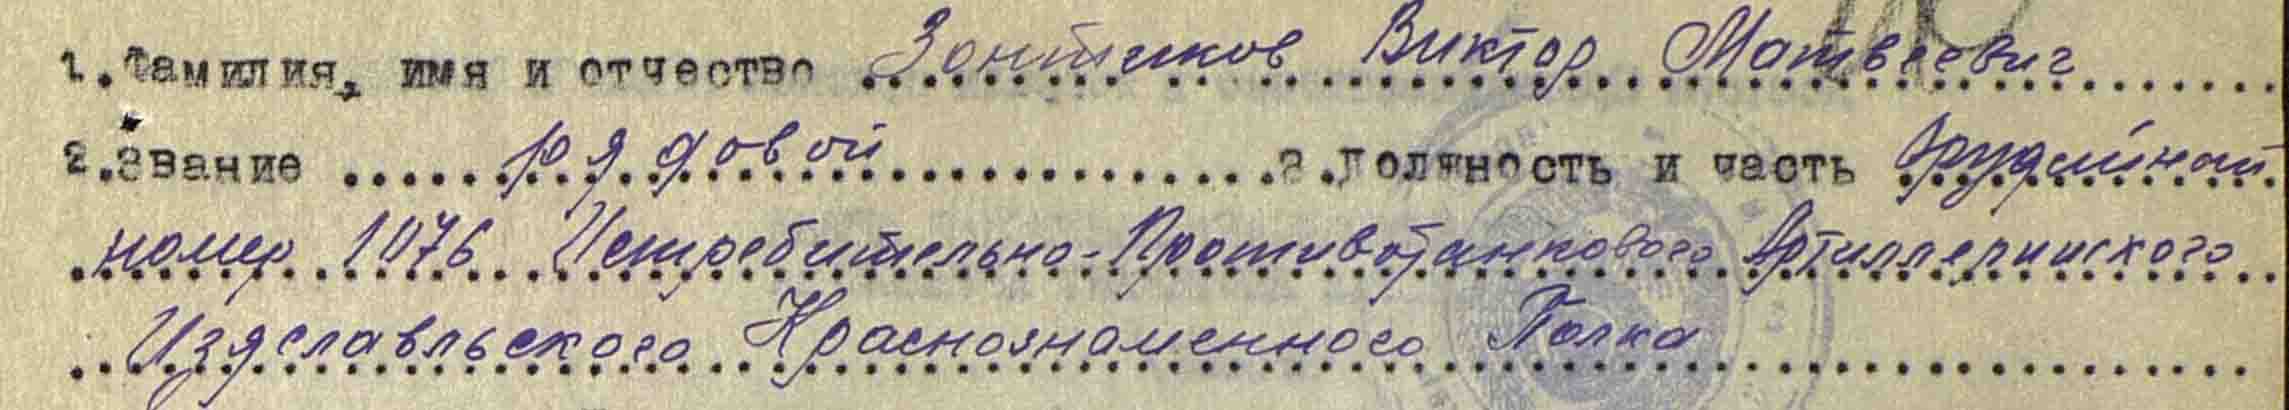 1. Фамилия, имя и отчество Зонтиков Виктор Матвеевич
2. Звание рядовой 3. Должность и часть Орудийной
номер 1076 Истребительно-Противотанкового Артиллерийского
Изяславльского Краснознаменного Полка